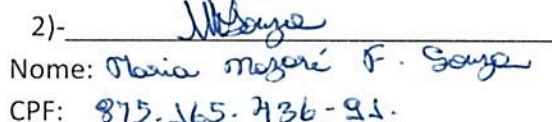 2)- MSouza
Nome: Maria Mazaré F. Souza
CPF: 875.165.436-91.